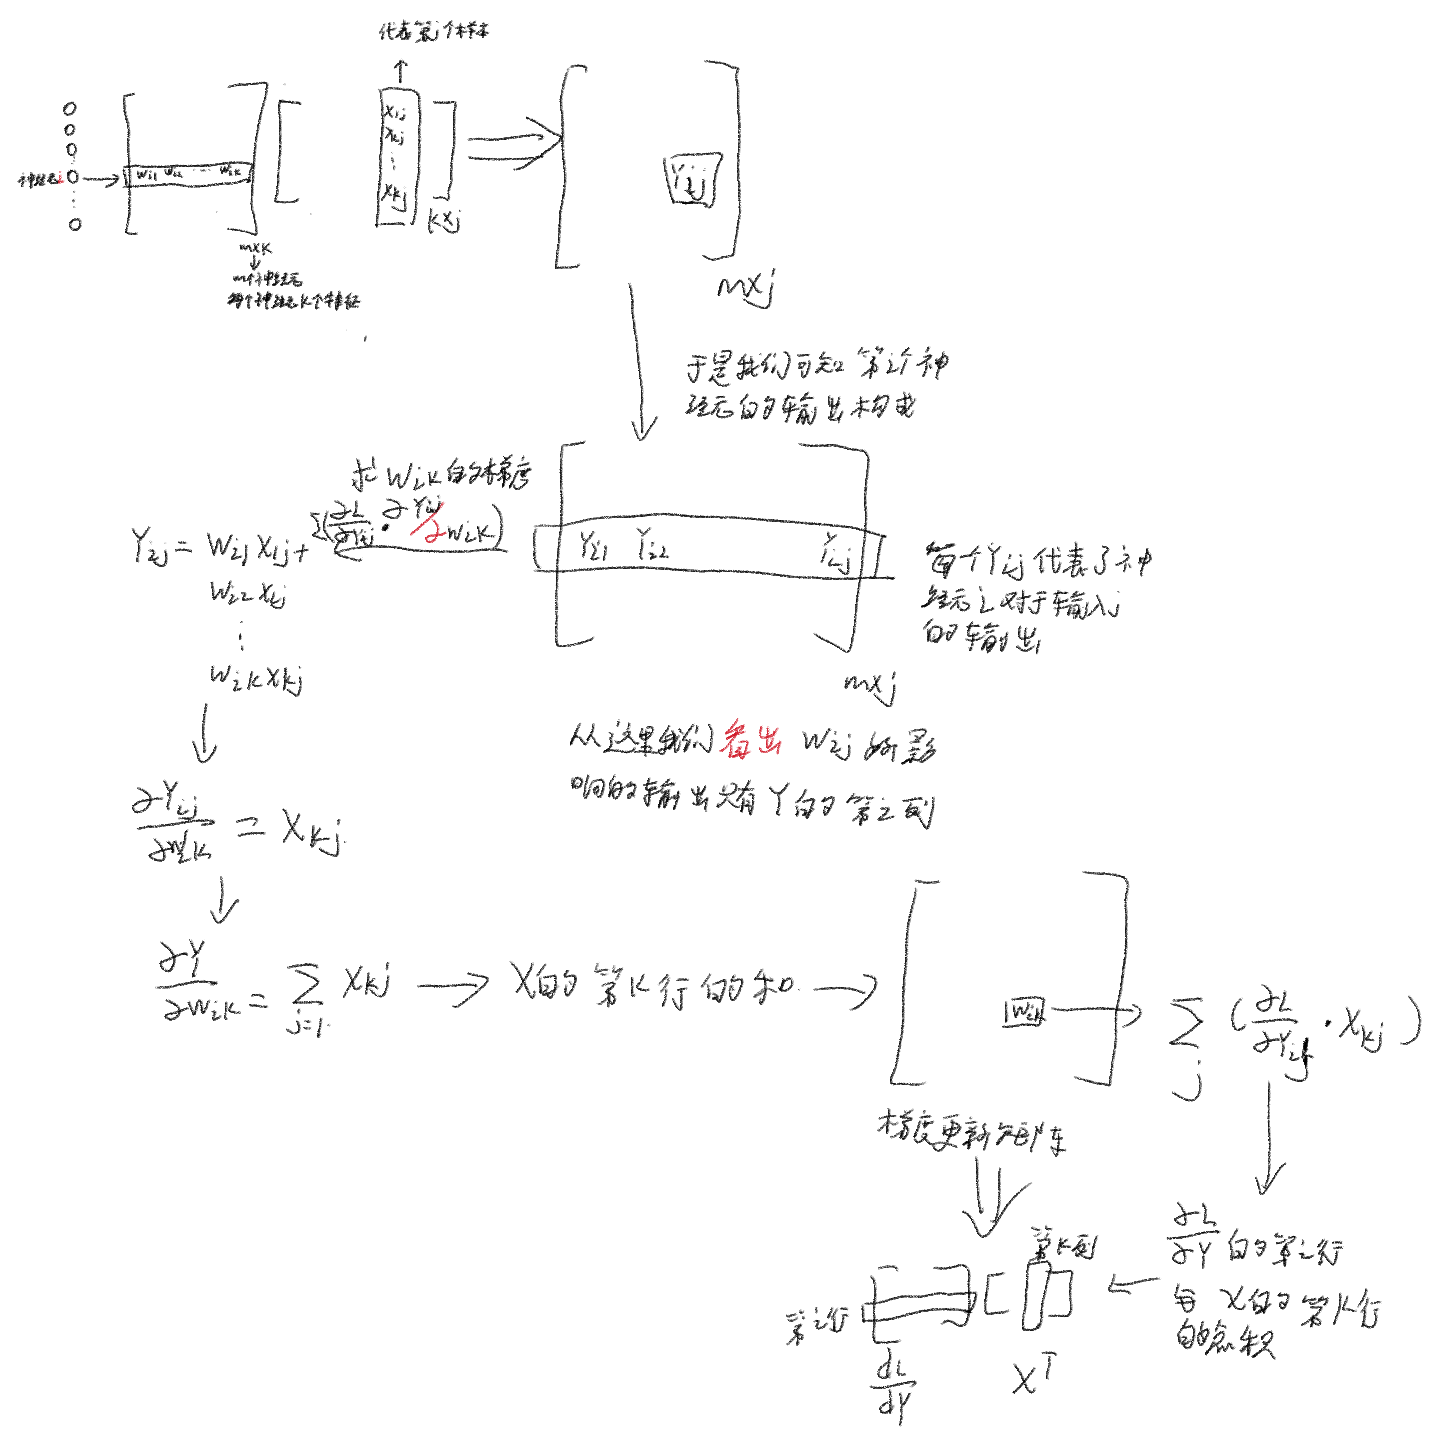 代表第j个样本
x1j
x2j
⋮
xkj
神经元i
wi1 wi2 ⋯ wik
k×j
Yij
m×k
m个神经元
每个神经元k个特征
m×j
于是我们可知第i个神
经元的输出构成
求wik的梯度
Σ(∂L/∂Yij · ∂Yij/∂wik)
Yij = wi1 x1j +
wi2 x2j
⋮
wik xkj
Yi1 Yi2 Yij
每个Yij代表了神
经元i对于输入j
的输出
m×j
从这里我们看出 wij 所影
响的输出只有Y的第i列
∂Yij/∂wik = xkj
∂Y/∂wik = Σ j=1 xkj → X的第k行的和 →
wik
Σ j (∂L/∂Yij · xkj)
梯度更新矩阵
∂L/∂Y 的第i行
与 X的第k行
的点积
第k列
第i行
dL/dY
X^T